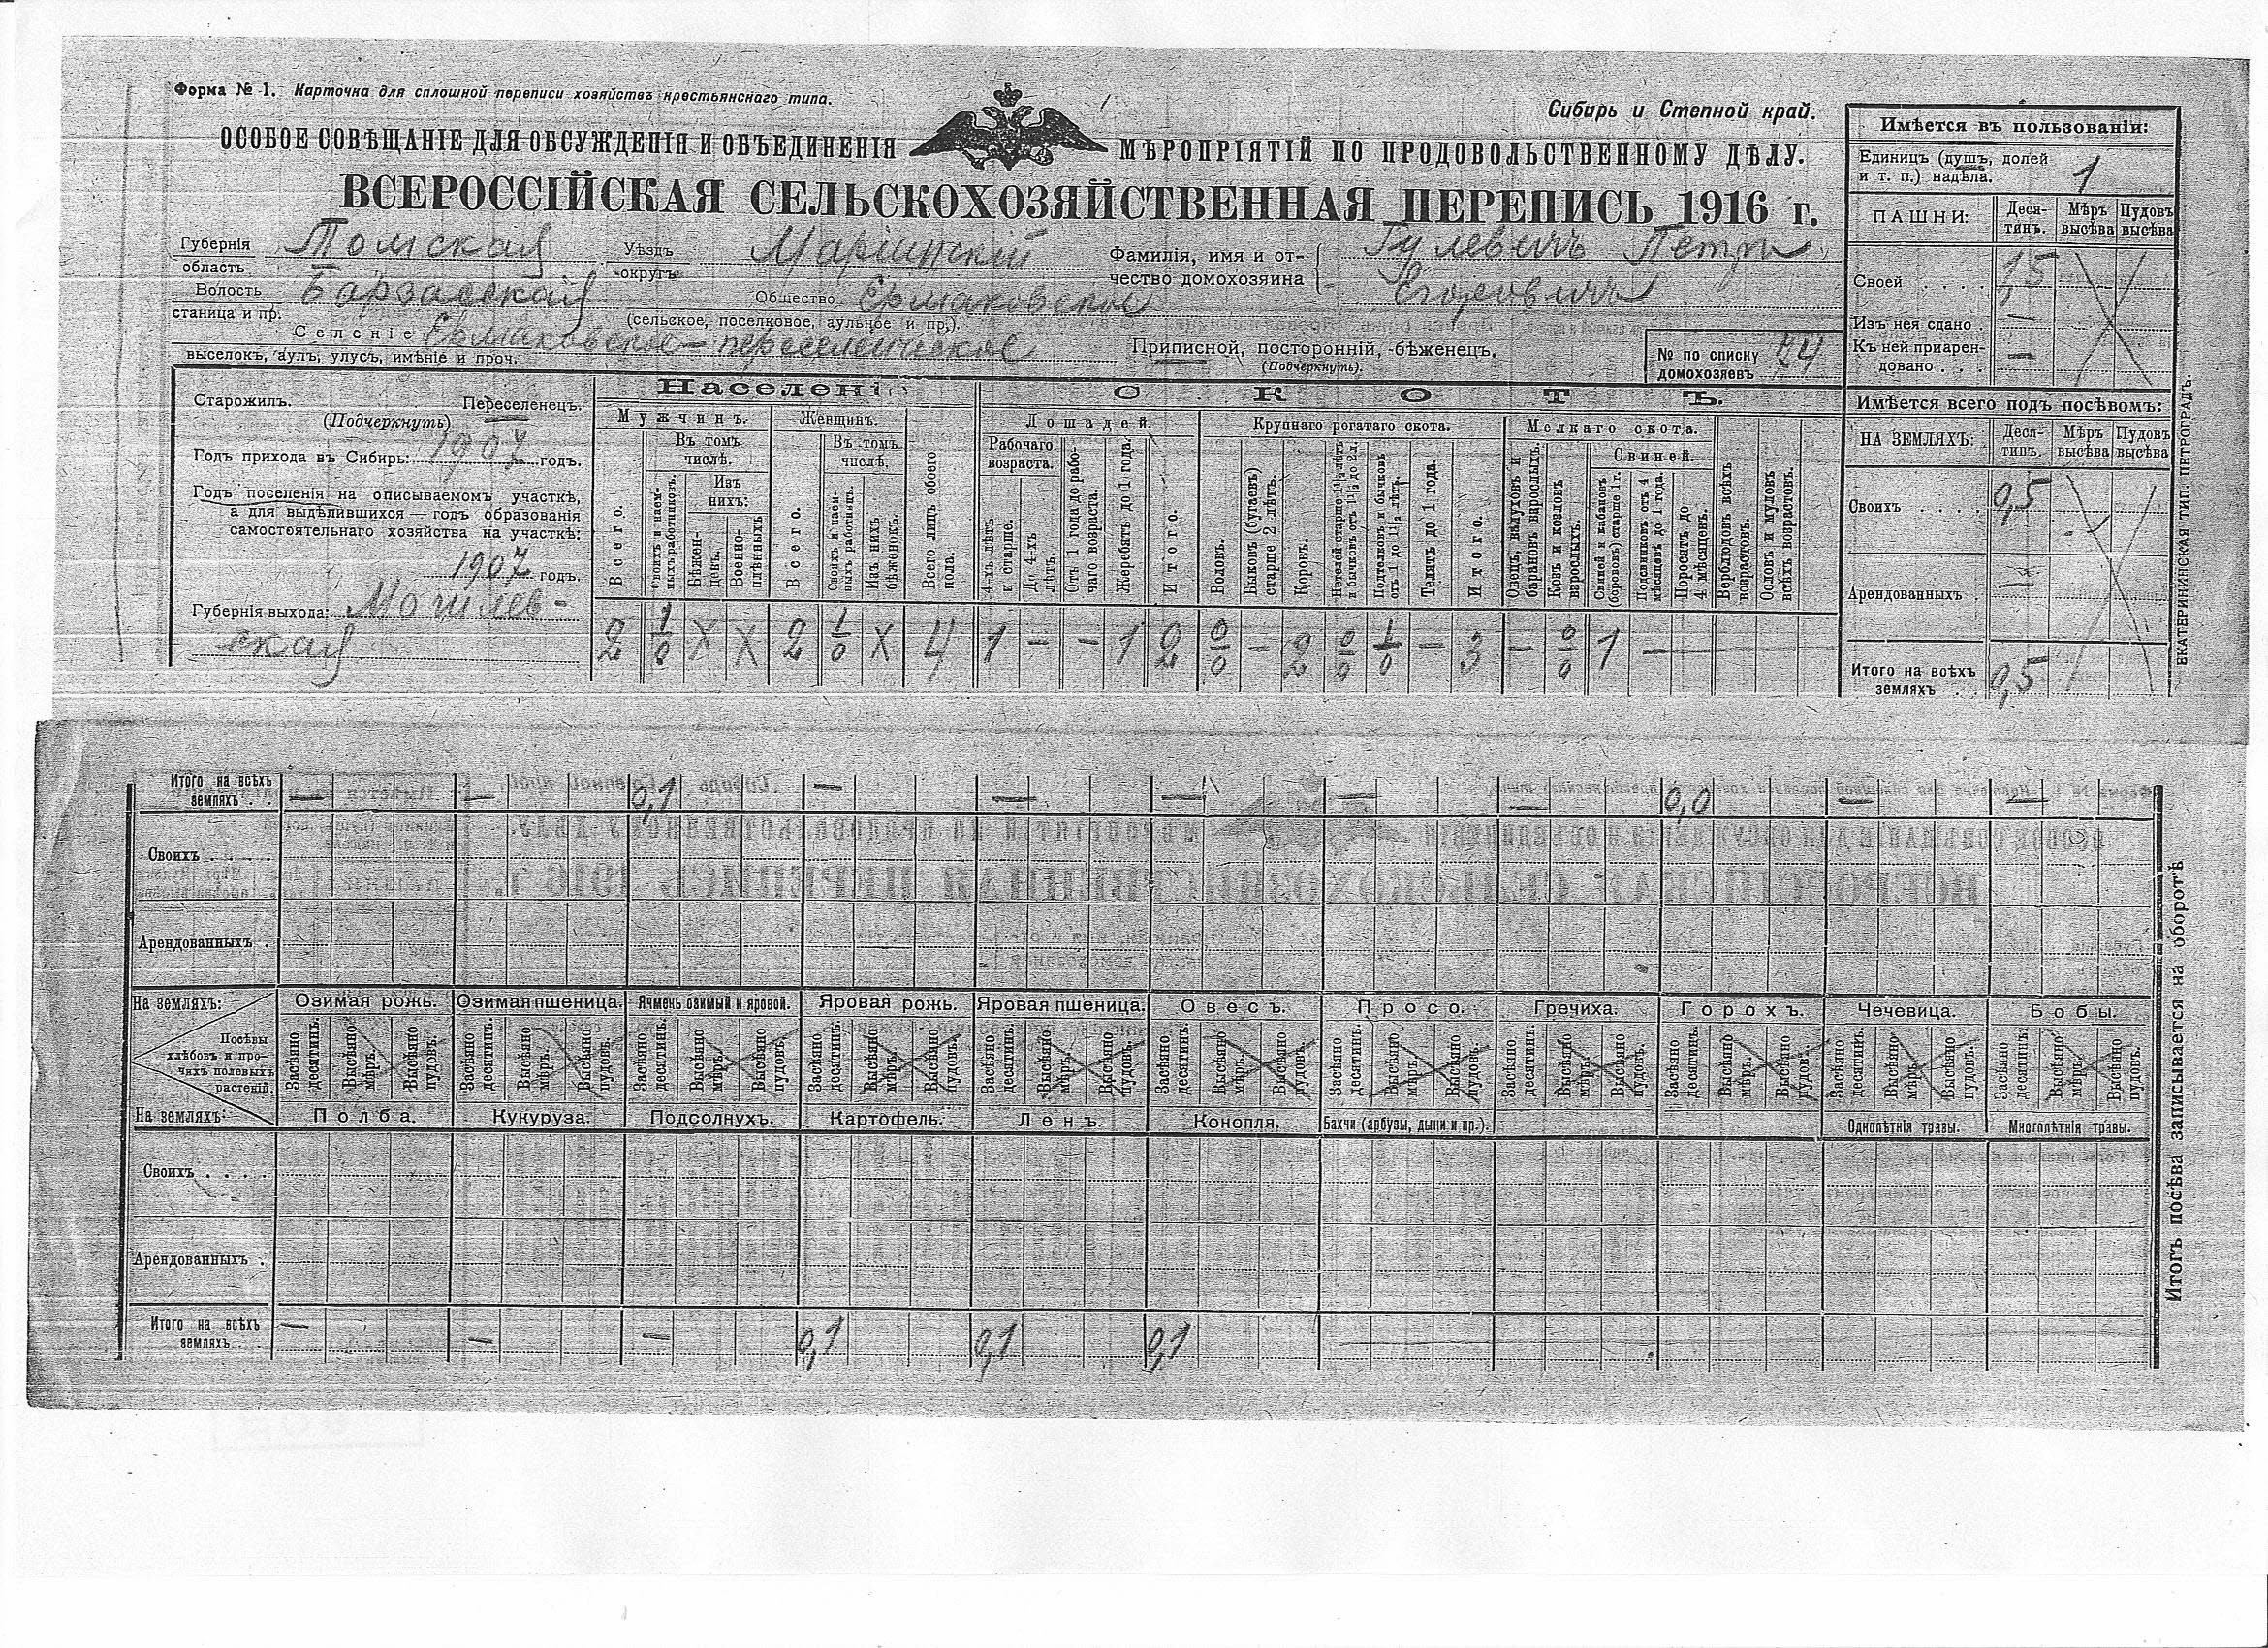 Форма № 1. Карточка для сплошной переписи хозяйствъ крестьянскаго типа.
Сибирь и Степной край.
ОСОБОЕ СОВѢЩАНІЕ ДЛЯ ОБСУЖДЕНІЯ И ОБЪЕДИНЕНІЯ МѢРОПРІЯТІЙ ПО ПРОДОВОЛЬСТВЕННОМУ ДѢЛУ.
ВСЕРОССІЙСКАЯ СЕЛЬСКОХОЗЯЙСТВЕННАЯ ПЕРЕПИСЬ 1916 г.
Губернія область Томская Уѣздъ округъ Маріинскій Фамилія, имя и отчество домохозяина Гулевичъ Петръ
Волость станица и пр. Барзасская Общество Ермаковское Егоровичъ
(сельское, поселковое, аульное и пр.).
Селеніе Ермаковское - переселенческое
выселокъ, аулъ, улусъ, имѣніе и проч.
Приписной, посторонній, бѣженецъ.
(Подчеркнуть).
№ по списку домохозяевъ 74
Имѣется въ пользованіи:
Единицъ (душъ, долей
и т. п.) надѣла. 1
ПАШНИ: Десятинъ. Мѣръ высѣва Пудовъ высѣва
Своей 1,5
Изъ нея сдано —
Къ ней приарендовано —
Имѣется всего подъ посѣвомъ:
НА ЗЕМЛЯХЪ: Десятинъ. Мѣръ высѣва Пудовъ высѣва
Своихъ 0,5
Арендованныхъ —
Итого на всѣхъ земляхъ 0,5
ЕКАТЕРИНИНСКАЯ ТИП. ПЕТРОГРАДЪ.
Старожилъ. Переселенецъ.
(Подчеркнуть)
Годъ прихода въ Сибирь: 1907 годъ.
Годъ поселенія на описываемомъ участкѣ,
а для выдѣлившихся — годъ образованія
самостоятельнаго хозяйства на участкѣ:
1907 годъ.
Губернія выхода: Могилев-
ская
Населені
Мужчинъ. Женщинъ.
Всего.
Въ томъ числѣ.
Своихъ и наемныхъ работниковъ.
Изъ нихъ:
Бѣженцовъ.
Военноплѣнныхъ
Всего.
Въ томъ числѣ.
Своихъ и наемныхъ работницъ.
Изъ нихъ бѣженокъ.
Всего лицъ обоего пола.
СКОТЪ.
Лошадей. Крупнаго рогатаго скота. Мелкаго скота.
Рабочаго возраста.
4-хъ лѣтъ и старше.
До 4-хъ лѣтъ.
Отъ 1 года до рабочаго возраста.
Жеребятъ до 1 года.
Итого.
Воловъ.
Быковъ (бугаевъ) старше 2 лѣтъ.
Коровъ.
Нетелей старше 1½ лѣтъ и бычковъ отъ 1½ до 2 л.
Подтелковъ и бычковъ отъ 1 до 1½ лѣтъ.
Телятъ до 1 года.
Итого.
Овецъ, валуховъ и барановъ взрослыхъ.
Козъ и козловъ взрослыхъ.
Свиней.
Свиней и кабановъ (борововъ) старше 1 г.
Подсвинковъ отъ 4 мѣсяцевъ до 1 года.
Поросятъ до 4 мѣсяцевъ.
Верблюдовъ всѣхъ возрастовъ.
Ословъ и муловъ всѣхъ возрастовъ.
2 1/0 X X 2 1/0 X 4 1 - - 1 2 0/0 - 2 0/0 1/0 - 3 - 0/0 1 -
Итого на всѣхъ земляхъ — — 0,1 — — — — — 0,0 — —
Своихъ
Арендованныхъ
На земляхъ: Озимая рожь. Озимая пшеница. Ячмень озимый и яровой. Яровая рожь. Яровая пшеница. Овесъ. Просо. Гречиха. Горохъ. Чечевица. Бобы.
Посѣвы хлѣбовъ и прочихъ полевыхъ растеній.
Засѣяно десятинъ. Высѣяно мѣръ. Высѣяно пудовъ.
На земляхъ: Полба. Кукуруза. Подсолнухъ. Картофель. Ленъ. Конопля. Бахчи (арбузы, дыни и пр.). Однолѣтнія травы. Многолѣтнія травы.
Своихъ
Арендованныхъ
Итого на всѣхъ земляхъ — — — 0,1 0,1 0,1
Итогъ посѣва записывается на оборотѣ